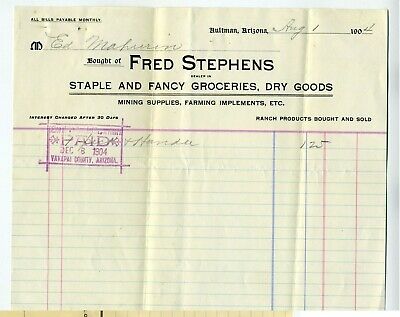 ALL BILLS PAYABLE MONTHLY.
Aultman, Arizona, Aug 1 1904
M Ed Mahurin
Bought of FRED STEPHENS
DEALER IN
STAPLE AND FANCY GROCERIES, DRY GOODS
MINING SUPPLIES, FARMING IMPLEMENTS, ETC.
INTEREST CHARGED AFTER 30 DAYS
RANCH PRODUCTS BOUGHT AND SOLD
Handle 1 25
PAID
DEC 6 1904
YAVAPAI COUNTY, ARIZONA.